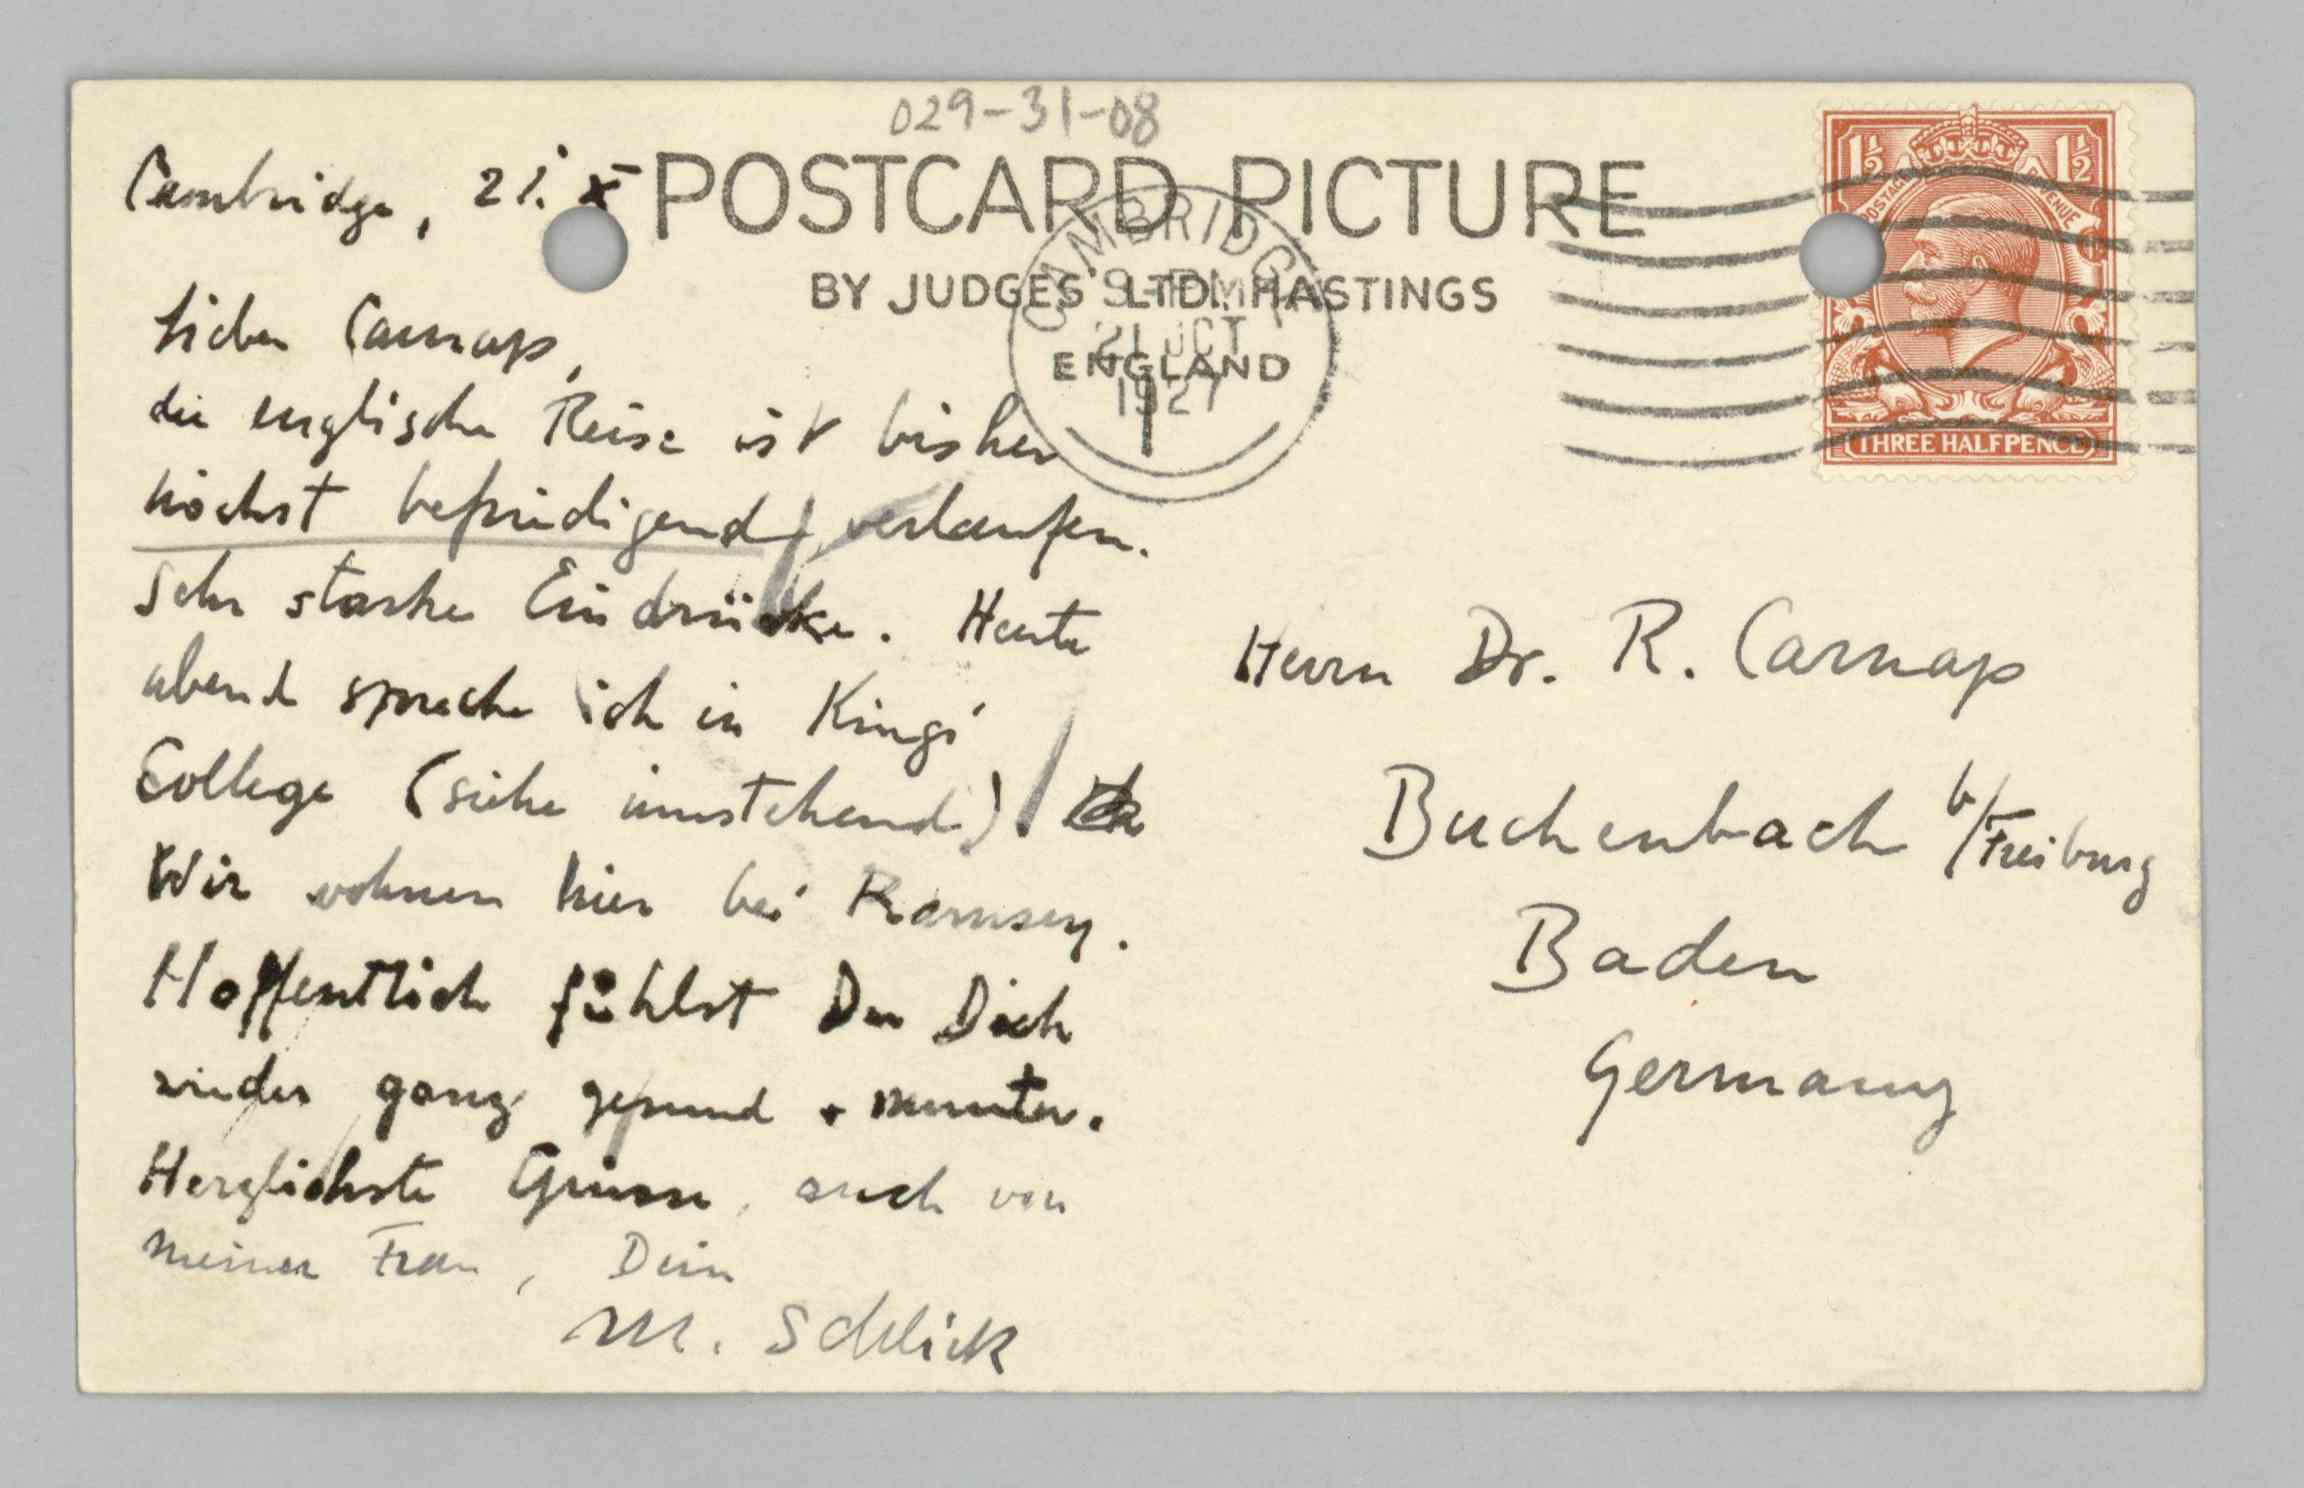 029-31-08
Cambridge, 21. X
POSTCARD PICTURE
BY JUDGES' LTD. HASTINGS
ENGLAND
CAMBRIDGE
PM
21 OCT
1927
1½ 1½
POSTAGE REVENUE
THREE HALFPENCE
Lieber Carnap,
die englische Reise ist bisher
höchst befriedigend verlaufen.
Sehr starke Eindrücke. Heute
abend spreche ich in Kings'
College (siehe umstehend).
Wir wohnen hier bei Ramsey.
Hoffentlich fühlst Du Dich
wieder ganz gesund + munter.
Herzlichste Grüsse, auch von
meiner Frau, Dein
M. Schlick
Herrn Dr. R. Carnap
Buchenbach b/Freiburg
Baden
Germany